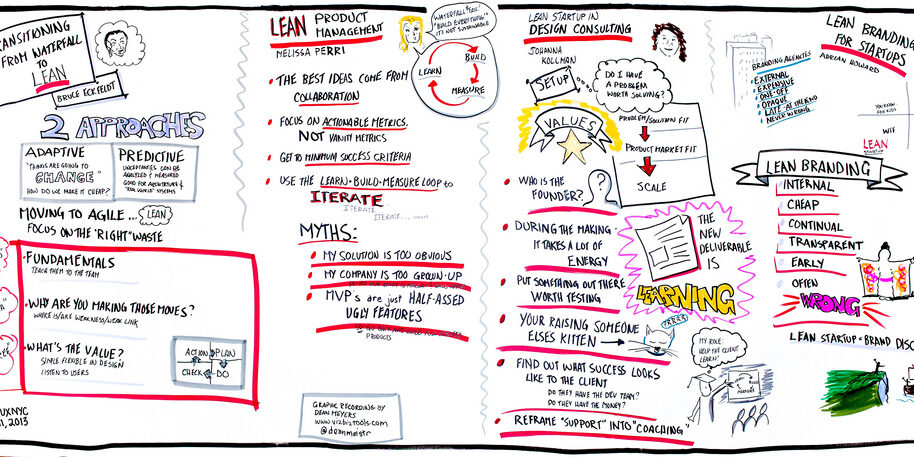 FROM WATERFALL
TO
LEAN
BRUCE ECKFELDT
2 APPROACHES
ADAPTIVE
"THINGS ARE GOING TO
CHANGE"
HOW DO WE MAKE IT CHEAP?
PREDICTIVE
UNCERTAINTIES CAN BE
ANALYZED & MEASURED
GOOD FOR ARCHITECTURE &
"REAL WORLD" SYSTEMS
MOVING TO AGILE...
LEAN
FOCUS ON THE "RIGHT" WASTE
FUNDAMENTALS
TEACH THEM TO THE TEAM
WHY ARE YOU MAKING THOSE MOVES?
WHERE IS/ARE WEAKNESS/WEAK LINK
WHAT'S THE VALUE?
SIMPLE FLEXIBLE IN DESIGN
LISTEN TO USERS
ACTION PLAN
CHECK DO
UXNYC
11, 2013
LEAN PRODUCT
MANAGEMENT
MELISSA PERRI
"BUILD EVERYTHING"
IT'S NOT SUSTAINABLE
LEARN
BUILD
MEASURE
THE BEST IDEAS COME FROM
COLLABORATION
FOCUS ON ACTIONABLE METRICS.
NOT VANITY METRICS
GET TO MINIMUM SUCCESS CRITERIA
USE THE LEARN-BUILD-MEASURE LOOP to
ITERATE
ITERATE
ITERATE...
MYTHS:
MY SOLUTION IS TOO OBVIOUS
MY COMPANY IS TOO GROWN-UP
MVP's are just HALF-ASSED
UGLY FEATURES
PRODUCTS
GRAPHIC RECORDING BY
DEAN MEYERS
www.vizbiztools.com
@deanmeistr
LEAN STARTUP IN
DESIGN CONSULTING
JOHANNA
KOLLMAN
SETUP
DO I HAVE
A PROBLEM
WORTH SOLVING?
VALUES
PROBLEM/SOLUTION FIT
PRODUCT MARKET FIT
SCALE
WHO IS THE
FOUNDER?
DURING THE MAKING
IT TAKES A LOT OF
ENERGY
PUT SOMETHING OUT THERE
WORTH TESTING
THE
NEW
DELIVERABLE
IS
LEARNING
YOUR RAISING SOMEONE
ELSES KITTEN
PRRRR
FIND OUT WHAT SUCCESS LOOKS
LIKE TO THE CLIENT
DO THEY HAVE THE DEV TEAM?
DO THEY HAVE THE MONEY?
REFRAME "SUPPORT" INTO "COACHING"
MY ROLE:
HELP THE CLIENT
LEARN
LEAN BRANDING
FOR STARTUPS
ADRIAN HOWARD
BRANDING AGENCIES
EXTERNAL
EXPENSIVE
ONE-OFF
OPAQUE
LATE AT THE END
NEVER WRONG
YOU KNOW...
FOR KIDS
WTF
LEAN
STARTUP
LEAN BRANDING
INTERNAL
CHEAP
CONTINUAL
TRANSPARENT
EARLY
OFTEN
WRONG
LEAN STARTUP = BRAND DISC